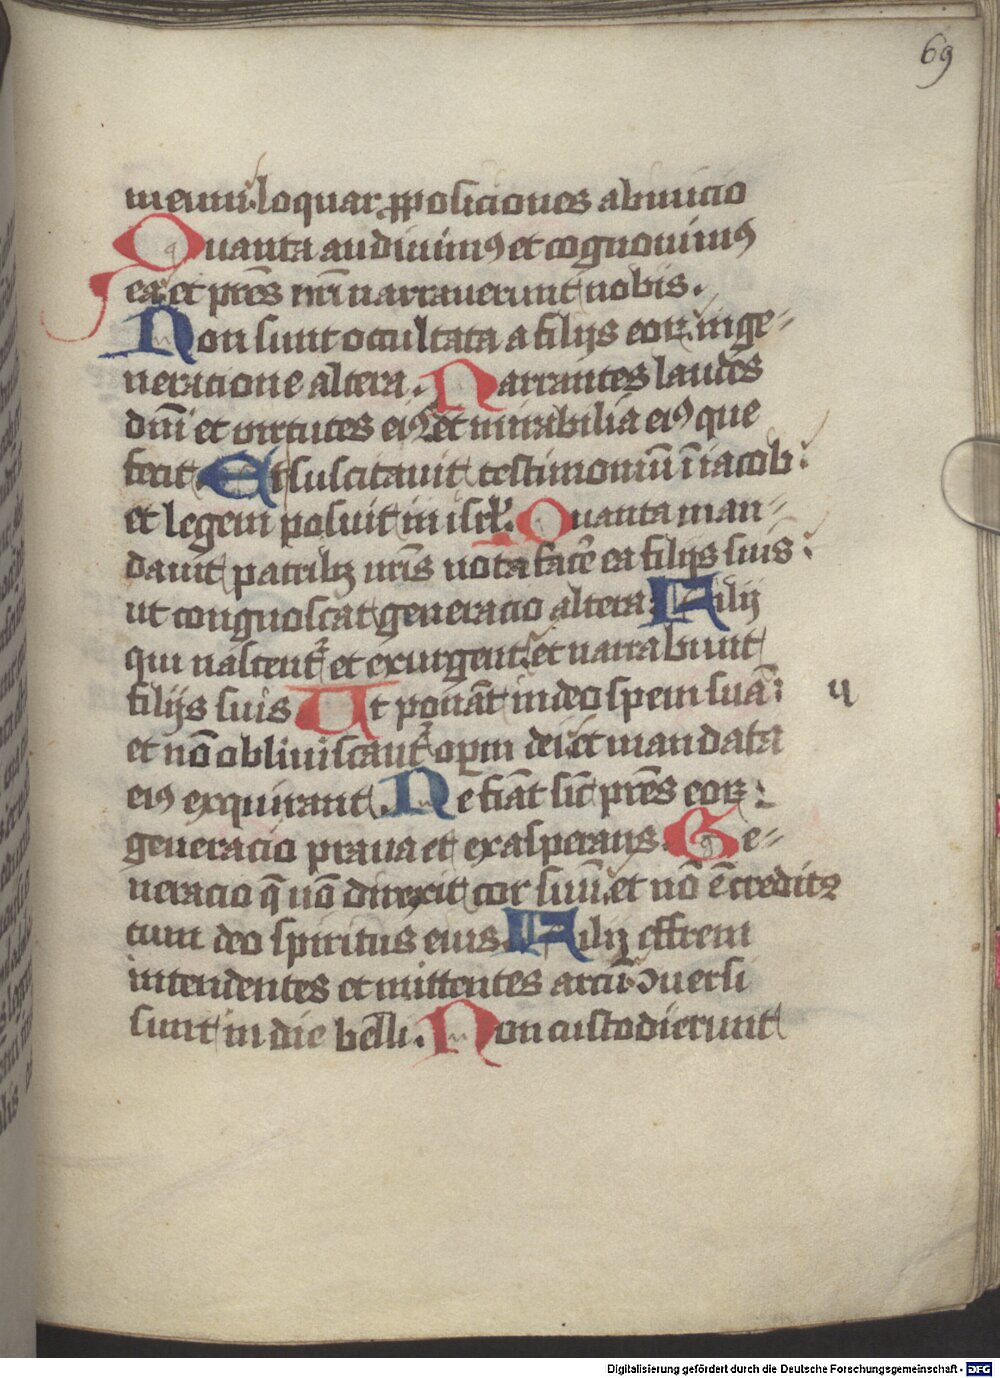 69
meum loquar ꝓposiciones ab inicio
Quanta audiuimꝰ et cognouimꝰ
ea et prẽs nr̃i narrauerunt nobis.
Non sunt occultata a filijs eoꝝ in ge-
neracione altera. Narrantes laudes
dñi et virtutes eiꝰ et mirabilia eiꝰ que
fecit Et suscitauit testimoniũ ĩ iacob:
et legem posuit in isrl̃. Quanta man-
dauit patribꝫ nr̃is nota facẽ ea filijs suis:
ut congnoscat generacio altera Filij
qui nascent᷑ et exurgent et narrabunt
filijs suis Ut ponãt in deo spem suã:
et nõ obliuiscant᷑ oꝑum dei et mandata
eiꝰ exquirant. Ne fiãt sic̃ prẽs eoꝝ:
generacio praua et exasperans. Ge-
neracio q̃ nõ direxit cor suũ et nõ ẽ credit᷑
tum deo spiritus eius Filij effrem
intendentes et mittentes arcũ ꝯuersi
sunt in die belli. Non custodierunt
Digitalisierung gefördert durch die Deutsche Forschungsgemeinschaft - DFG